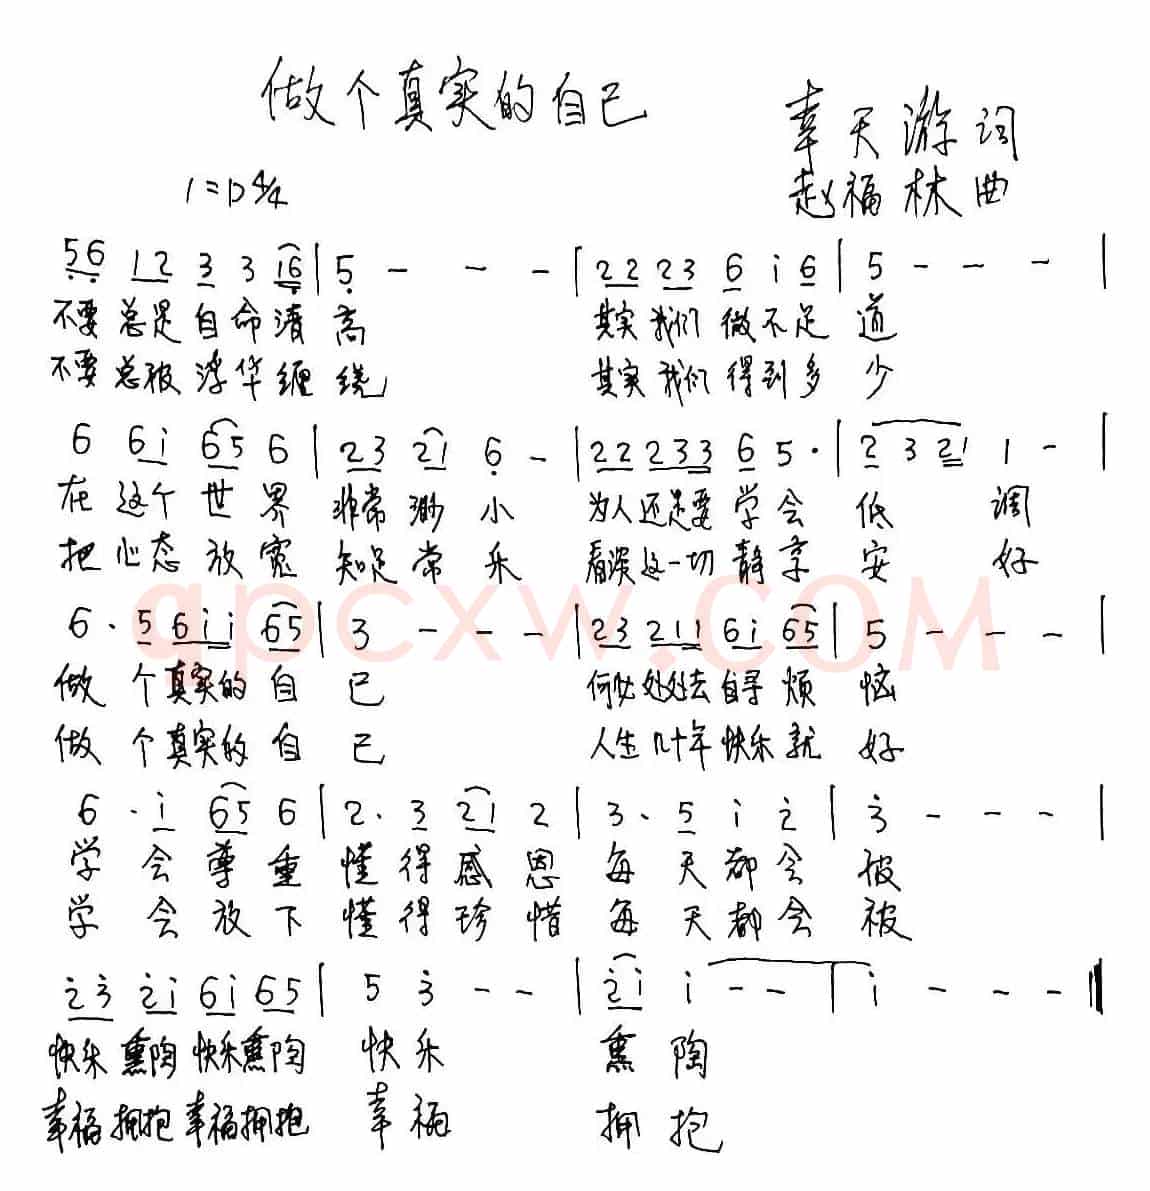 做个真实的自己
幸天游词
1=D 4/4
赵福林曲
56 12 3 3 16 | 5 - - - | 22 23 6 i 6 | 5 - - - |
不要总是自命清高 其实我们微不足道
不要总被浮华缠绕 其实我们得到多少
6 6i 65 6 | 23 21 6 - | 22 233 6 5· | 2 3 21 1 - |
在这个世界 非常渺小 为人还是要学会低调
把心态放宽 知足常乐 看淡这一切静享安好
6· 5 6ii 65 | 3 - - - | 23 211 6i 65 | 5 - - - |
做个真实的自己 何必处处去自寻烦恼
做个真实的自己 人生几十年快乐就好
6· i 65 6 | 2· 3 21 2 | 3· 5 i 2 | 3 - - - |
学会尊重 懂得感恩 每天都会被
学会放下 懂得珍惜 每天都会被
23 2i 6i 65 | 5 3 - - | 2i i - - | i - - - ‖
快乐熏陶快乐熏陶 快乐 熏陶
幸福拥抱幸福拥抱 幸福 拥抱
qpcxw.COM